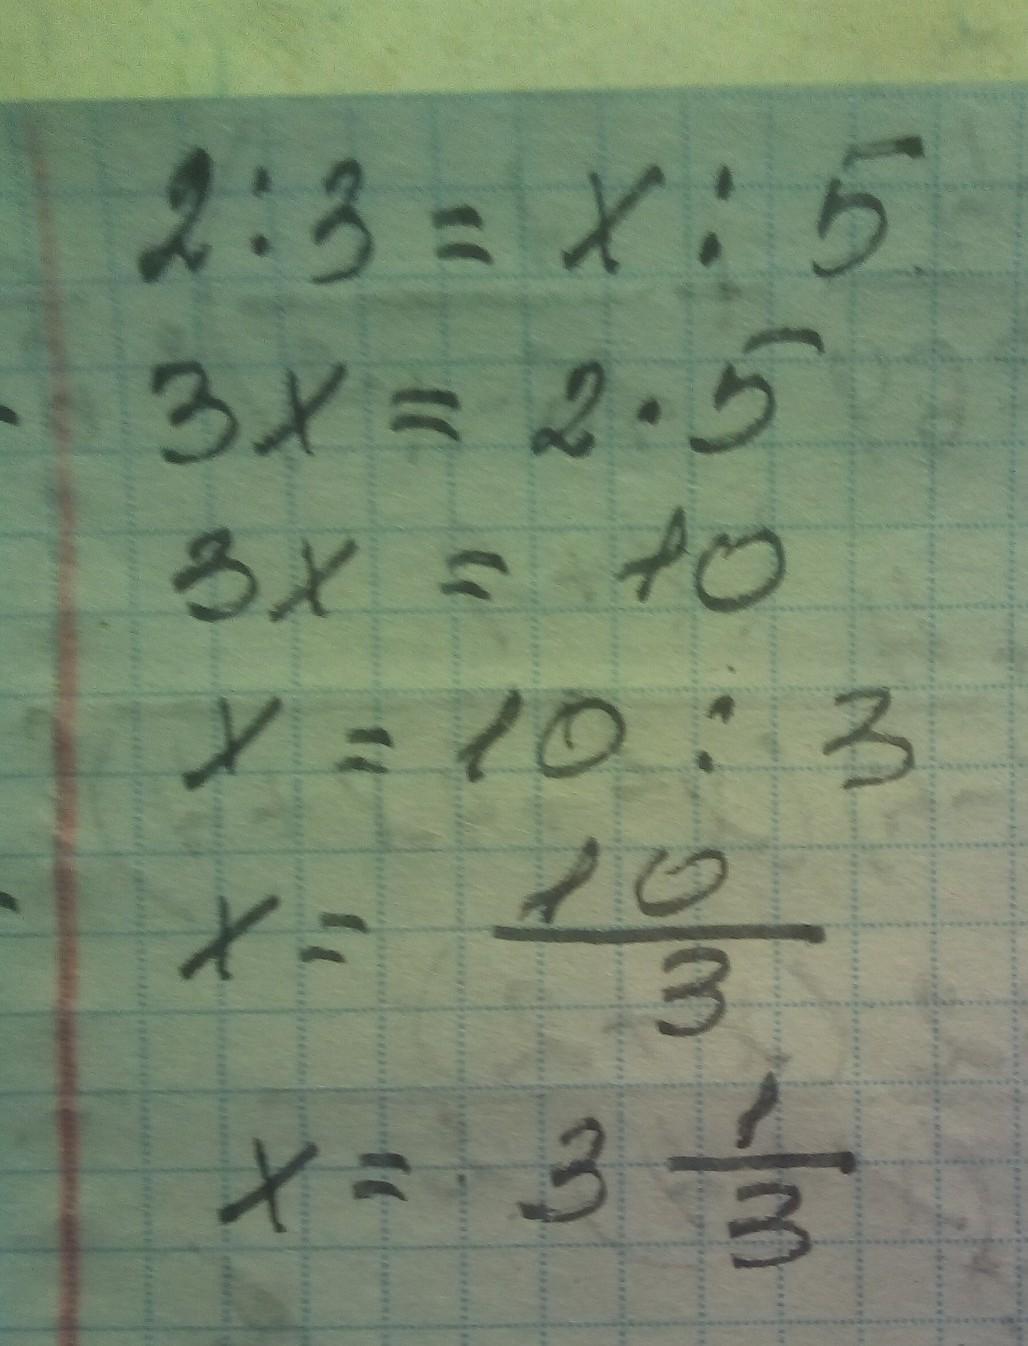 2 : 3 = x : 5
3x = 2 · 5
3x = 10
x = 10 : 3
x = 10/3
x = 3 1/3